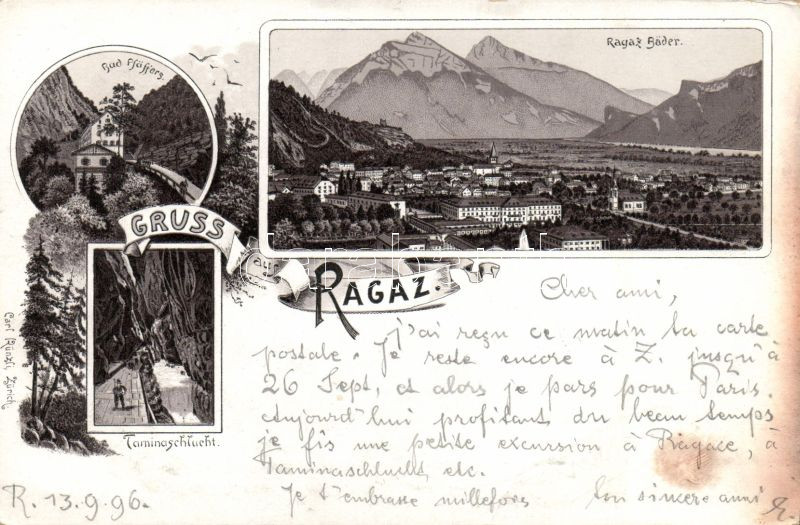 Bad Pfäffers.
Ragaz Bäder.
GRUSS
aus
RAGAZ.
Taminaschlucht.
Carl Künzli, Zürich
Cher ami,
j'ai reçu ce matin ta carte
postale. Je reste encore à Z. jusqu'à
26 Sept, et alors je pars pour Paris.
Aujourd'hui profitant du beau temps
je fis une petite excursion à Ragace, à
Taminaschlucht, etc.
Je t'embrasse millefois ton sincere ami
R. 13.9.96.